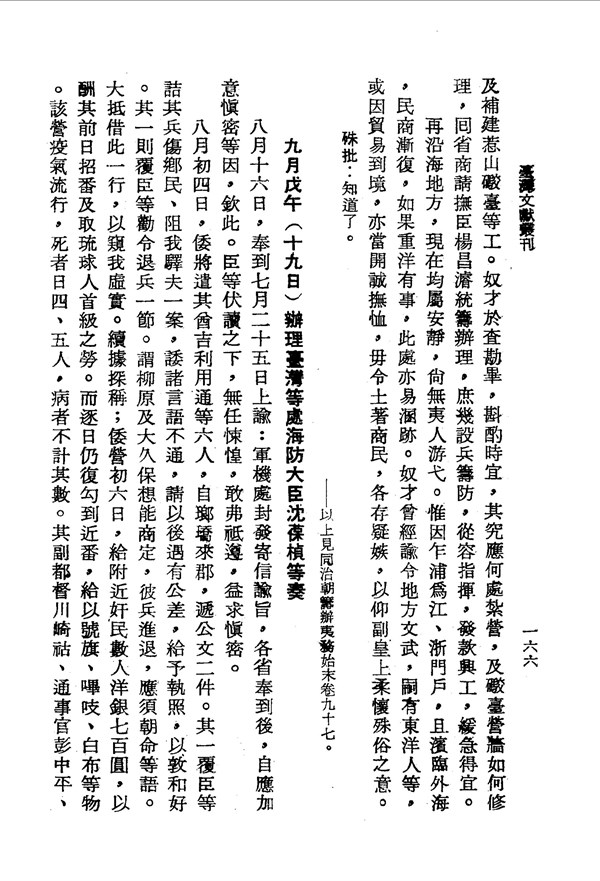 臺灣文獻叢刊
一六六
及補建惹山礮臺等工。奴才於查勘畢，斟酌時宜，其究應何處紮營，及礮臺營牆如何修
理，囘省商請撫臣楊昌濬統籌辦理，庶幾設兵籌防，從容指揮，發款興工，緩急得宜。
再沿海地方，現在均屬安靜，尙無夷人游弋。惟因乍浦爲江、浙門戶，且濱臨外海
，民商漸復，如果重洋有事，此處亦易溷跡。奴才曾經諭令地方文武，嗣有東洋人等，
或因貿易到境，亦當開誠撫恤，毋令土著商民，各存疑嫉，以仰副皇上柔懷殊俗之意。
硃批：知道了。
——以上見同治朝籌辦夷務始末卷九十七。
九月戊午（十九日）辦理臺灣等處海防大臣沈葆楨等奏
八月十六日，奉到七月二十五日上諭：軍機處封發寄信諭旨，各省奉到後，自應加
意愼密等因，欽此。臣等伏讀之下，無任悚惶，敢弗祗遵，益求愼密。
八月初四日，倭將遣其酋吉利用通等六人，自瑯𤩝來郡，遞公文二件。其一覆臣等
詰其兵傷鄉民、阻我驛夫一案，諉諸言語不通，請以後遇有公差，給予執照，以敦和好
。其一則覆臣等勸令退兵一節。謂柳原及大久保想能商定，彼兵進退，應須朝命等語。
大抵借此一行，以窺我虛實。續據探稱；倭營初六日，給附近奸民數人洋銀七百圓，以
酬其前日招番及取琉球人首級之勞。而逐日仍復勾到近番，給以號旗、嗶吱、白布等物
。該營疫氣流行，死者日四、五人，病者不計其數。其副都督川崎祐、通事官彭中平、